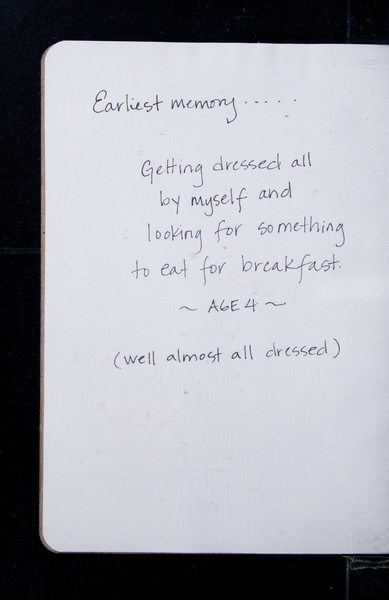 Earliest memory.....
Getting dressed all
by myself and
looking for something
to eat for breakfast.
~ AGE 4 ~
(well almost all dressed)